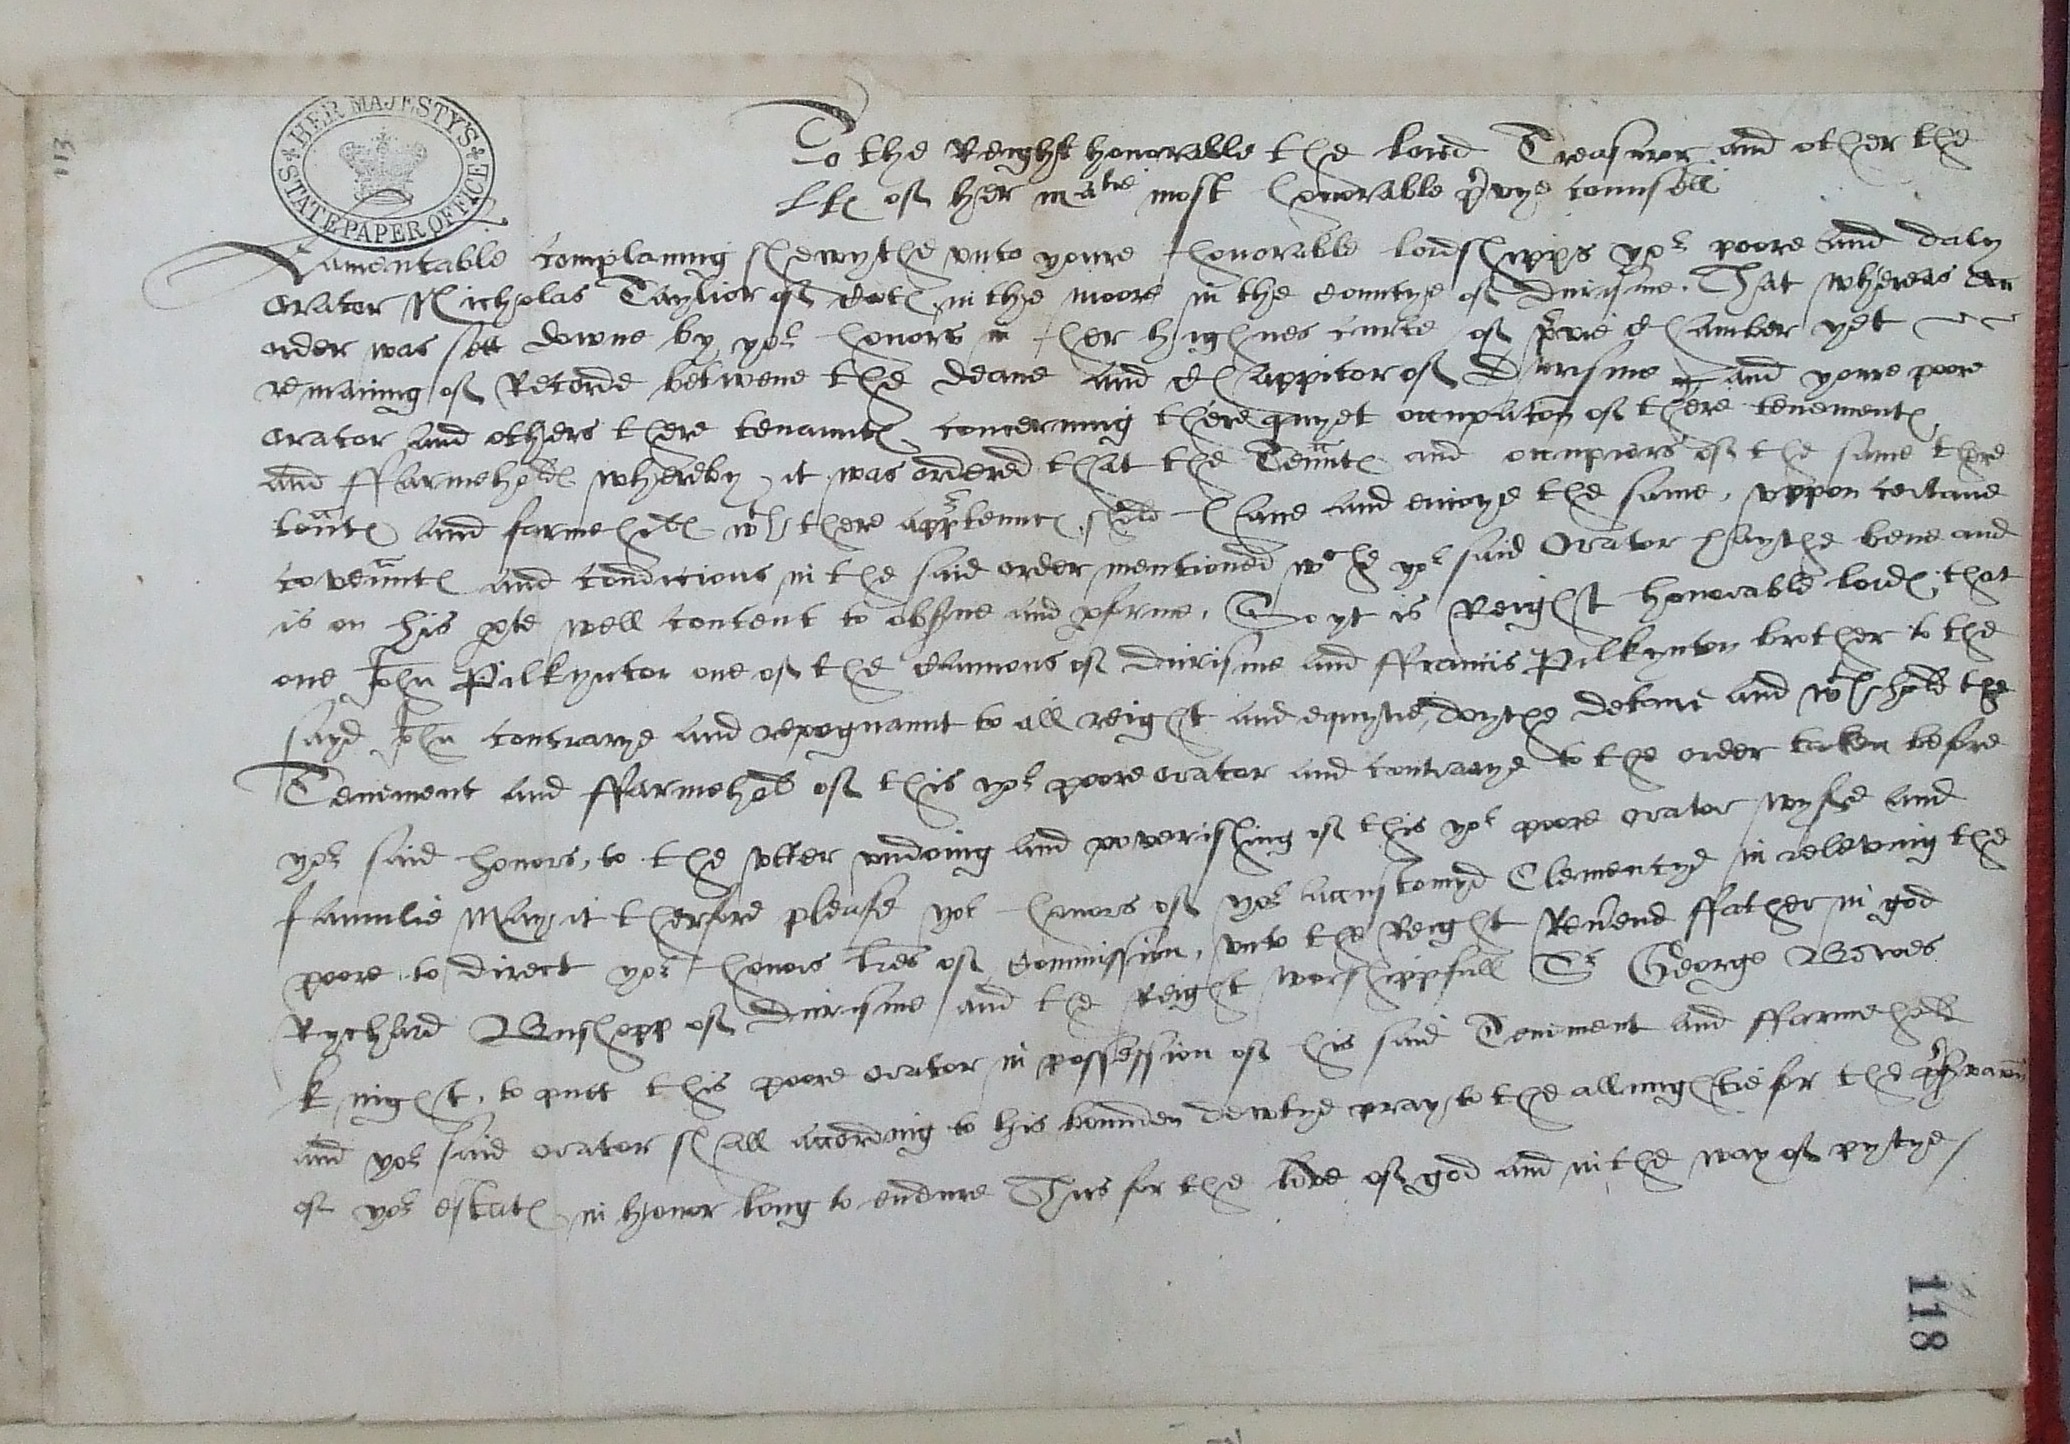 113
HER MAJESTY'S STATE PAPER OFFICE
To the Reight honorable the lord Treasuror and other the
LLes of her matie most honorable privye counsell
Lamentable complaning shewythe unto youre honorable lordshipps yor poore and daly
orator Nicholas Taylior of in the moore in the countye of Durisme. That whereas an
order was sett downe by yor honors in her highnes courte of chamber yet
remaning of Recorde betwene the deane and chappitor of Durisme and youre poore
orator and others there tenauntes concerning there quyet occupacon of there tenementes
and ffarmeholdes whereby it was ordered that the Tenntes and occupiers of the same there
tenntes and farmeholdes wth there apprtennces shold have and enioye the same, uppon certane
covenntes and condicions in the said order mentioned wche yor said Orator haythe bene and
is on his pte well content to observe and pforme, So yt is Reight honorable lordes, that
one John Pilkyntor one of the cannons of Durisme and ffrancis Pilkynton brother to the
sayd John contrarye and repugnannt to all reight and equytie doythe detane and wthhold the
Teniment and ffarmehold of this yor poore orator and contrarye to the order taken before
yor said honors, to the utter undoing and poverishing of this yor poore orator wyffe and
famulie May it therfore please yor honors of yor accustomyd Clementye in releving the
poore to direct yor honors lres of Commission, unto the Reight Revend ffather in god
Rychard Bushopp of Durisme and the Reight worshippfull Sr George Bowes
knight, to putt this poore orator in possession of his said Teniment and ffarmehold
and yor said orator shall according to his bounden dewtye pray to the allmightie for the
of yor estates in honor long to endure This for the love of god and in the way of pytye /
118